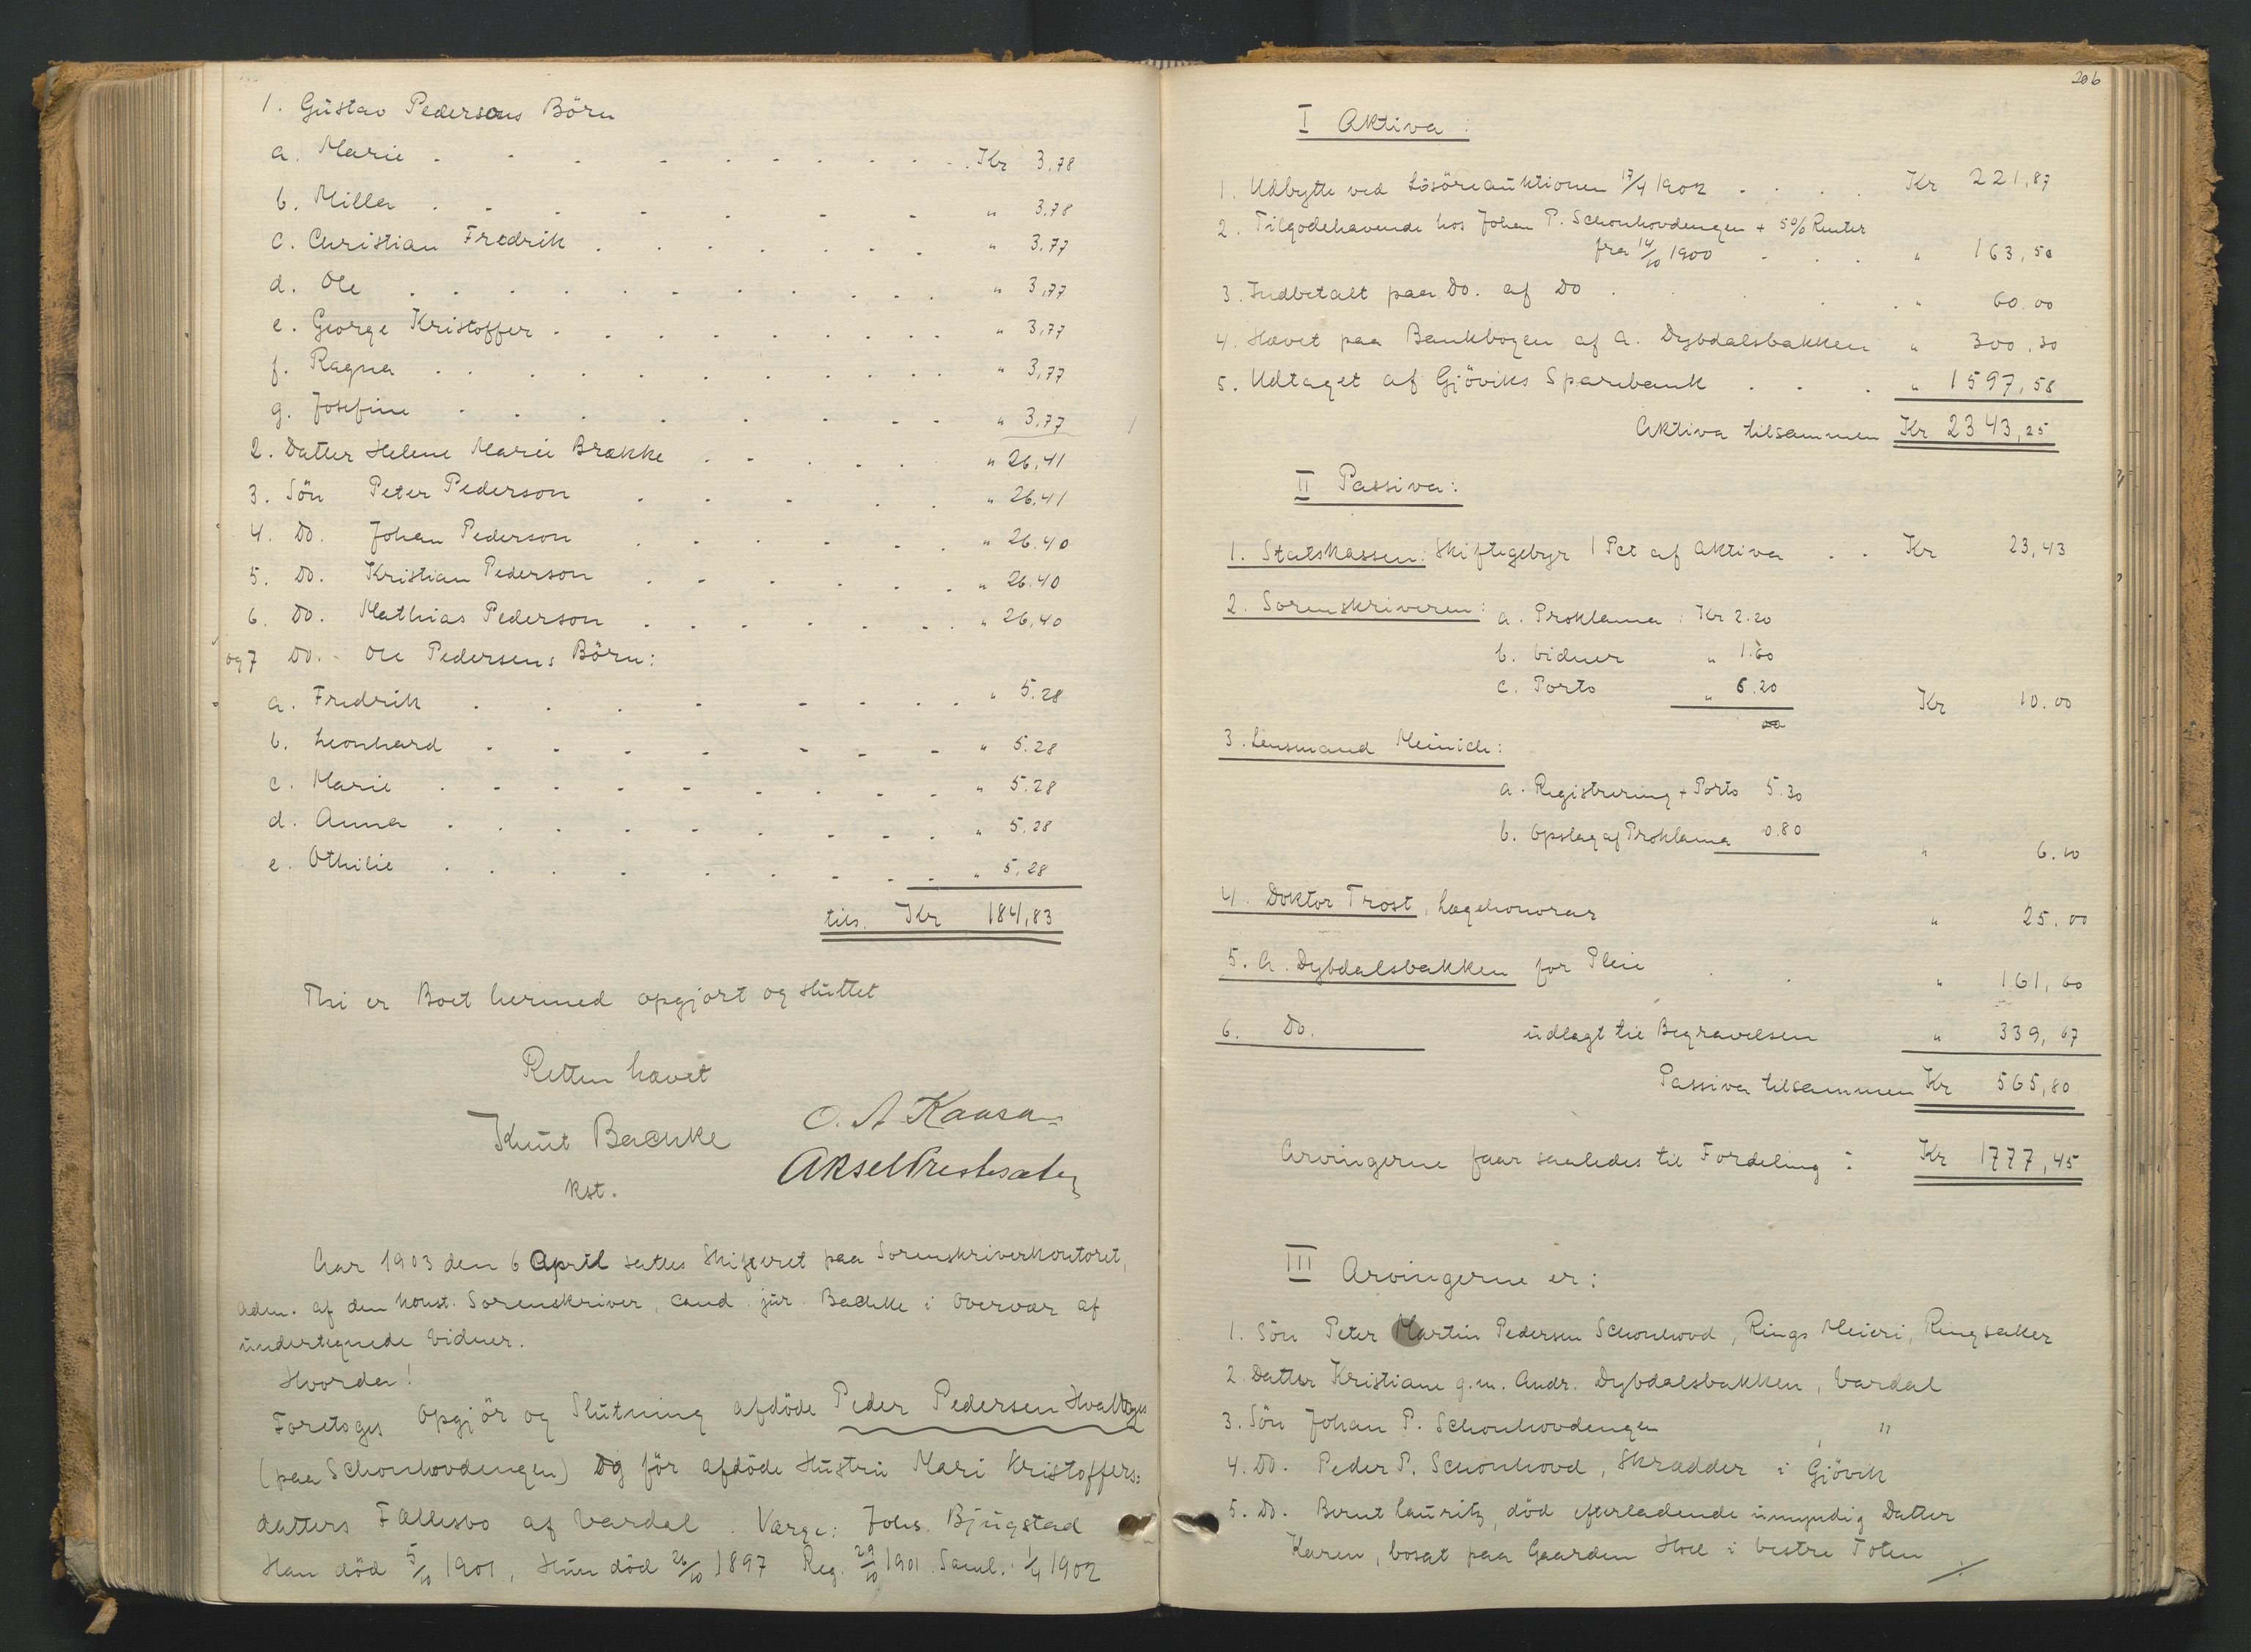 1. Gustav Pedersens Börn
a. Marie . . . . . . . . . Kr 3,78
b. Milla . . . . . . . " 3,78
c. Christian Fredrik . . . . . . " 3,77
d. Ole . . . . . . . . . . " 3,77
e. George Kristoffer . . . . . . . . " 3,77
f. Ragna . . . . . . . . . . " 3,77
g. Josefine . . . . . . . " 3,77
2. Datter Helene Marie Brække . . . . . " 26,41
3. Sön Peter Pederson . . . . . " 26.41
4. Do. Johan Pederson . . . . . . " 26.40
5. Do. Kristian Pederson . . . . . " 26.40
6. Do. Mathias Pederson . . . . . . " 26,40
og 7 Do. Ole Pedersens Börn:
a. Fredrik . . . . . . . . " 5.28
b. Leonhard . . . . . . . " 5.28
c. Marie . . . . . . . . " 5.28
d. Anna . . . . . . . . " 5.28
e. Othilie . . . . . . . . " 5.28
tils. Kr 184,83
Thi er Boet hermed opgjort og sluttet
Retten hævet
Knut Bachke O. A Kaasa
kst. Aksel
Aar 1903 den 6 April sattes Skifteret paa Sorenskriverkontoret,
adm. af den konst. Sorenskriver, cand. jur. Bachke i Overvær af
undertegnede Vidner.
Hvorda!
Foretoges Opgjör og Slutning afdöde Peder Pedersen
(paa Schonhovdengen) og för afdöde Hustru Mari Kristoffers:
datters Fællesbo af Vardal. Værge: Johs. Bjugstad
Han död 5/10 1901, Hun död 26/10 1897 Reg. 29/10 1901. Saml. 1/4 1902
206
I Aktiva:
1. Udbytte ved Lösöreauktionen 17/4 1902 . . . . Kr 221,87
2. Tilgodehavende hos Johan P. Schonhovdengen + 5% Renter
fra 14/10 1900 . . . " 163,50
3. Indbetalt paa Do. af Do . . . " 60.00
4. Hævet paa Bankbogen af A. Dybdalsbakken " 300,30
5. Udtaget af Gjöviks Sparebank . . . " 1597,58
Aktiva tilsammen Kr 2343,25
II Passiva:
1. Statskassen: Skiftegebyr 1 Pct af Aktiva . . Kr 23,43
2. Sorenskriveren: a. Proklama: Kr 2.20
b. Vidner " 1.60
c. Porto " 6.20
Kr 10.00
3. Lensmand Meinich:
a. Registrering + Porto 5.30
b. Opslag af Proklama 0.80
" 6.10
4. Doktor Trost, Lægehonorar " 25.00
5. A. Dybdalsbakken for Pleie . . " 161,60
6. Do. udlagt til Begravelsen " 339,67
Passiva tilsammen Kr 565,80
Arvingerne faar saaledes til Fordeling: Kr 1777,45
III Arvingerne er:
1. Sön Peter Martin Pedersen Schonhovd, Rings Meieri, Ringsaker
2. Datter Kristiane g.m. Andr. Dybdalsbakken, Vardal
3. Sön Johan P. Schonhovdengen , "
4. Do. Peder P. Schonhovd, Skrædder i Gjövik
5. Do. Bernt Lauritz, död efterladende umyndig Datter
Karen, bosat paa Gaarden Hoel i Vestre Toten